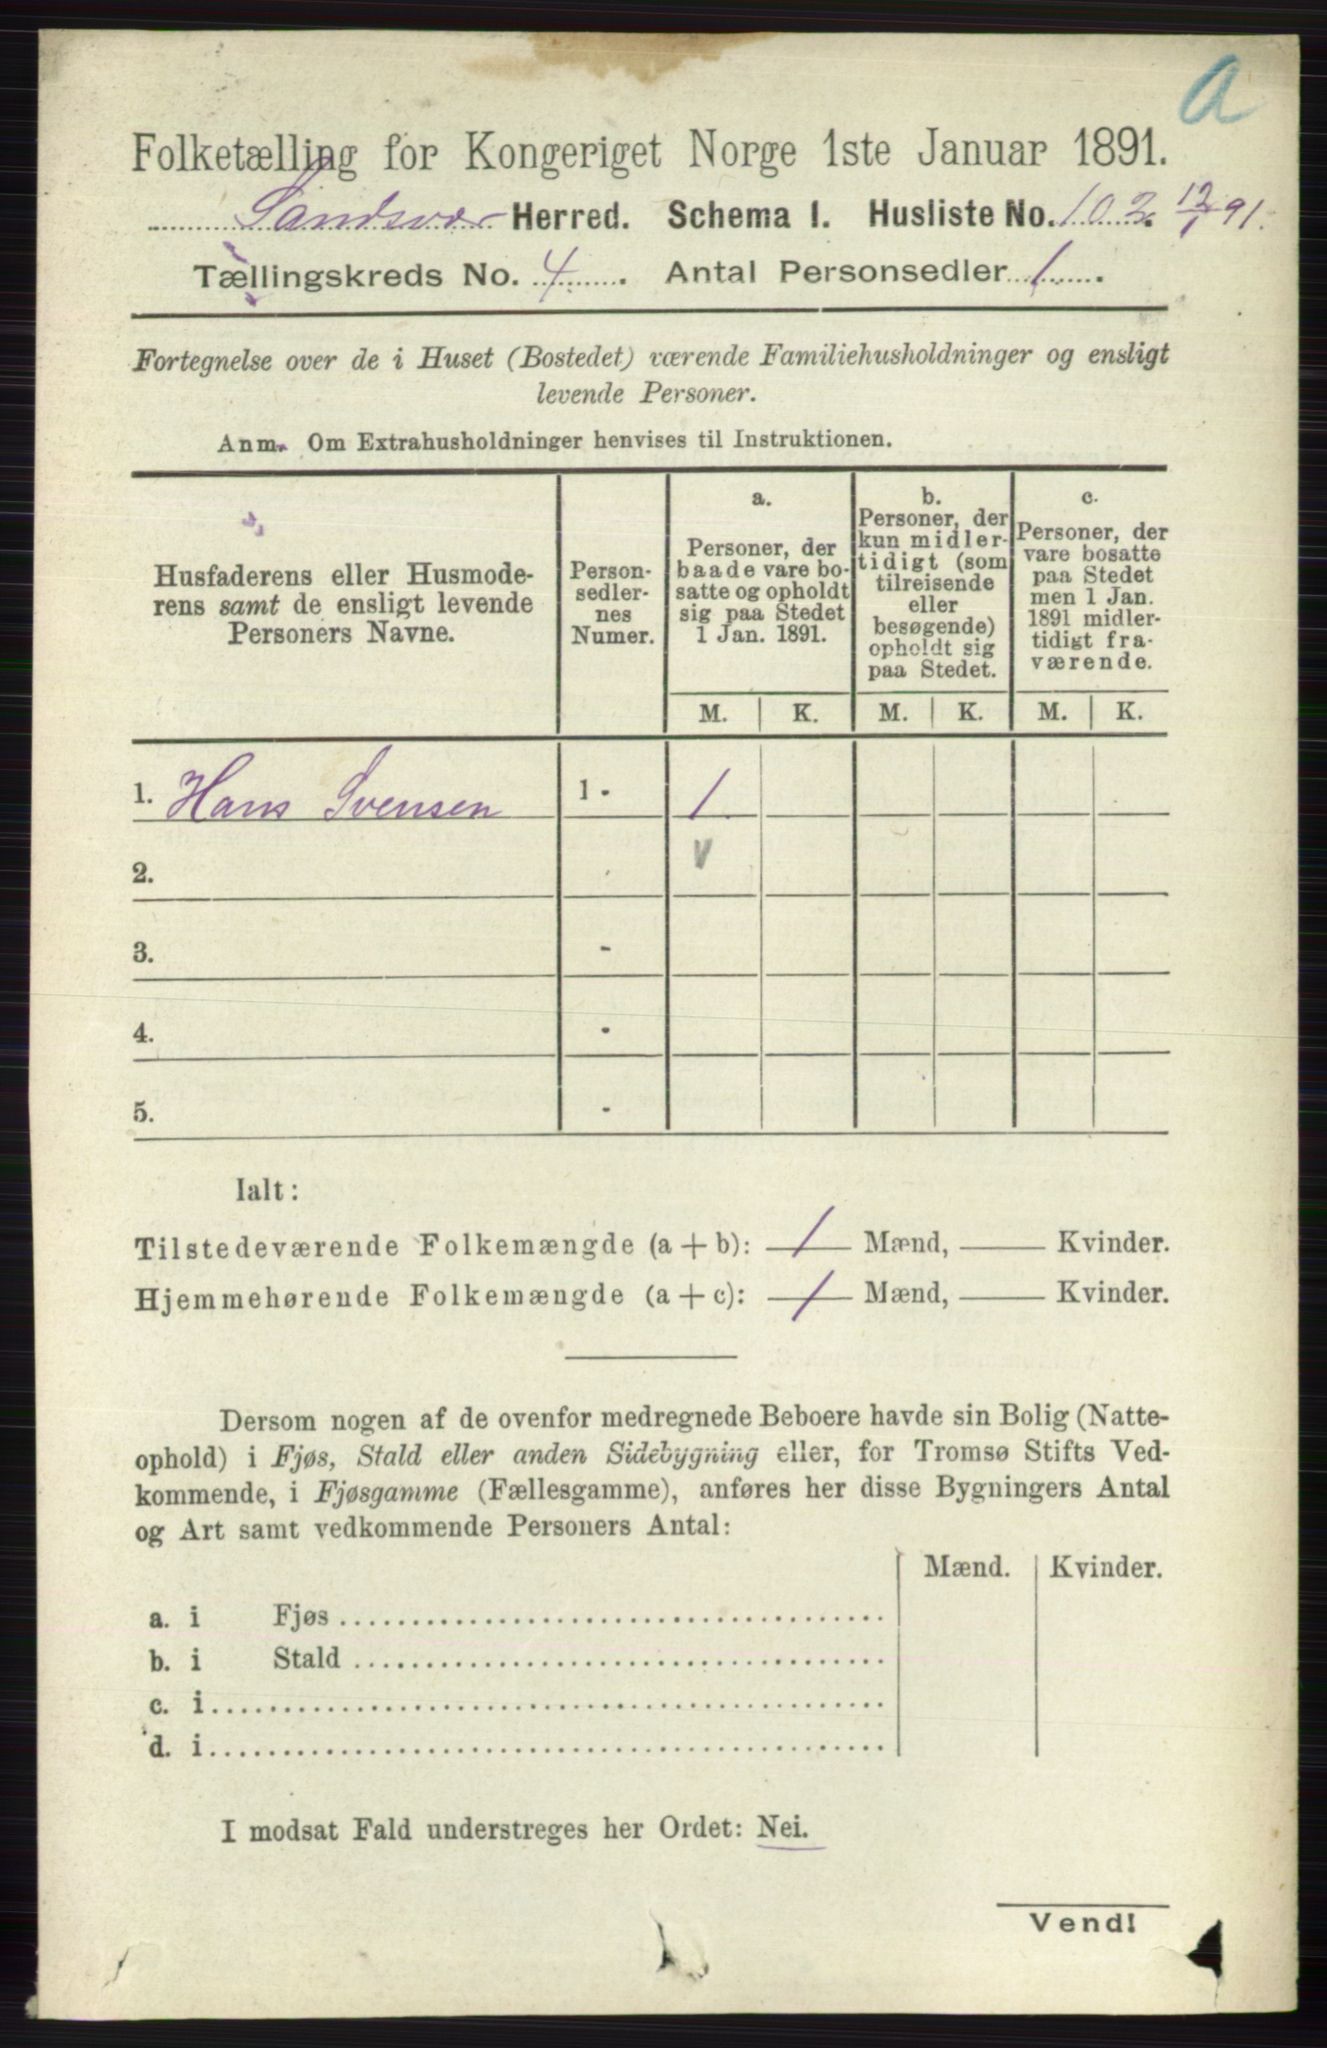 a
Folketælling for Kongeriget Norge 1ste Januar 1891.
Sandsvær Herred. Schema 1. Husliste No. 102. 12/1 91.
Tællingskreds No. 4. Antal Personsedler 1.
Fortegnelse over de i Huset (Bostedet) værende Familiehusholdninger og ensligt
levende Personer.
Anm. Om Extrahusholdninger henvises til Instruktionen.
Husfaderens eller Husmode-
rens samt de ensligt levende
Personers Navne.
Person-
sedler-
nes
Numer.
a.
Personer, der
baade vare bo-
satte og opholdt
sig paa Stedet
1 Jan. 1891.
b.
Personer, der
kun midler-
tidigt (som
tilreisende
eller
besøgende)
opholdt sig
paa Stedet.
c.
Personer, der
vare bosatte
paa Stedet
men 1 Jan.
1891 midler-
tidigt fra-
værende.
M. K. M. K. M. K.
1. Hans Svensen 1 - 1
2. v
3. -
4. -
5. -
Ialt:
Tilstedeværende Folkemængde (a + b): 1 Mænd, — Kvinder.
Hjemmehørende Folkemængde (a + c): 1 Mænd, — Kvinder.
Dersom nogen af de ovenfor medregnede Beboere havde sin Bolig (Natte-
ophold) i Fjøs, Stald eller anden Sidebygning eller, for Tromsø Stifts Ved-
kommende, i Fjøsgamme (Fællesgamme), anføres her disse Bygningers Antal
og Art samt vedkommende Personers Antal:
Mænd. Kvinder.
a. i Fjøs
b. i Stald
c. i
d. i
I modsat Fald understreges her Ordet: Nei.
Vend!